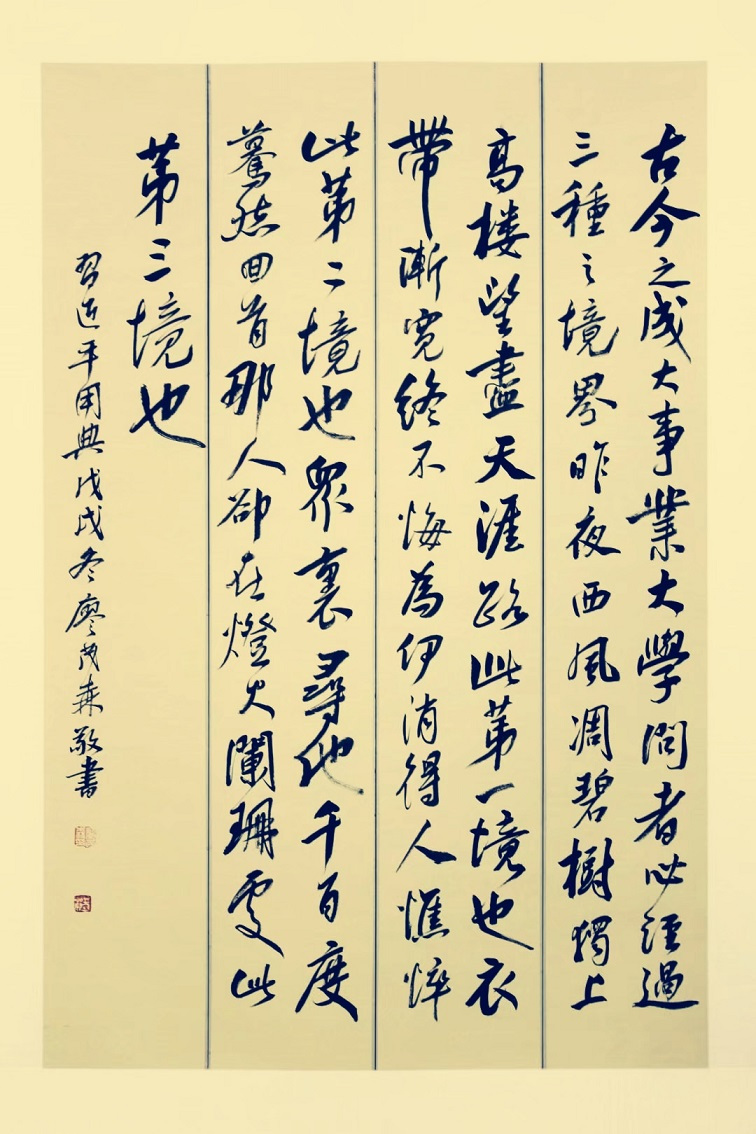 古今之成大事業大學問者必經過
三種之境界昨夜西風凋碧樹獨上
高楼望盡天涯路此第一境也衣
帶漸寬終不悔為伊消得人憔悴
此第二境也眾裏尋他千百度
驀然回首那人卻在燈火闌珊處此
第三境也
習近平用典戊戌冬廖茂森敬書